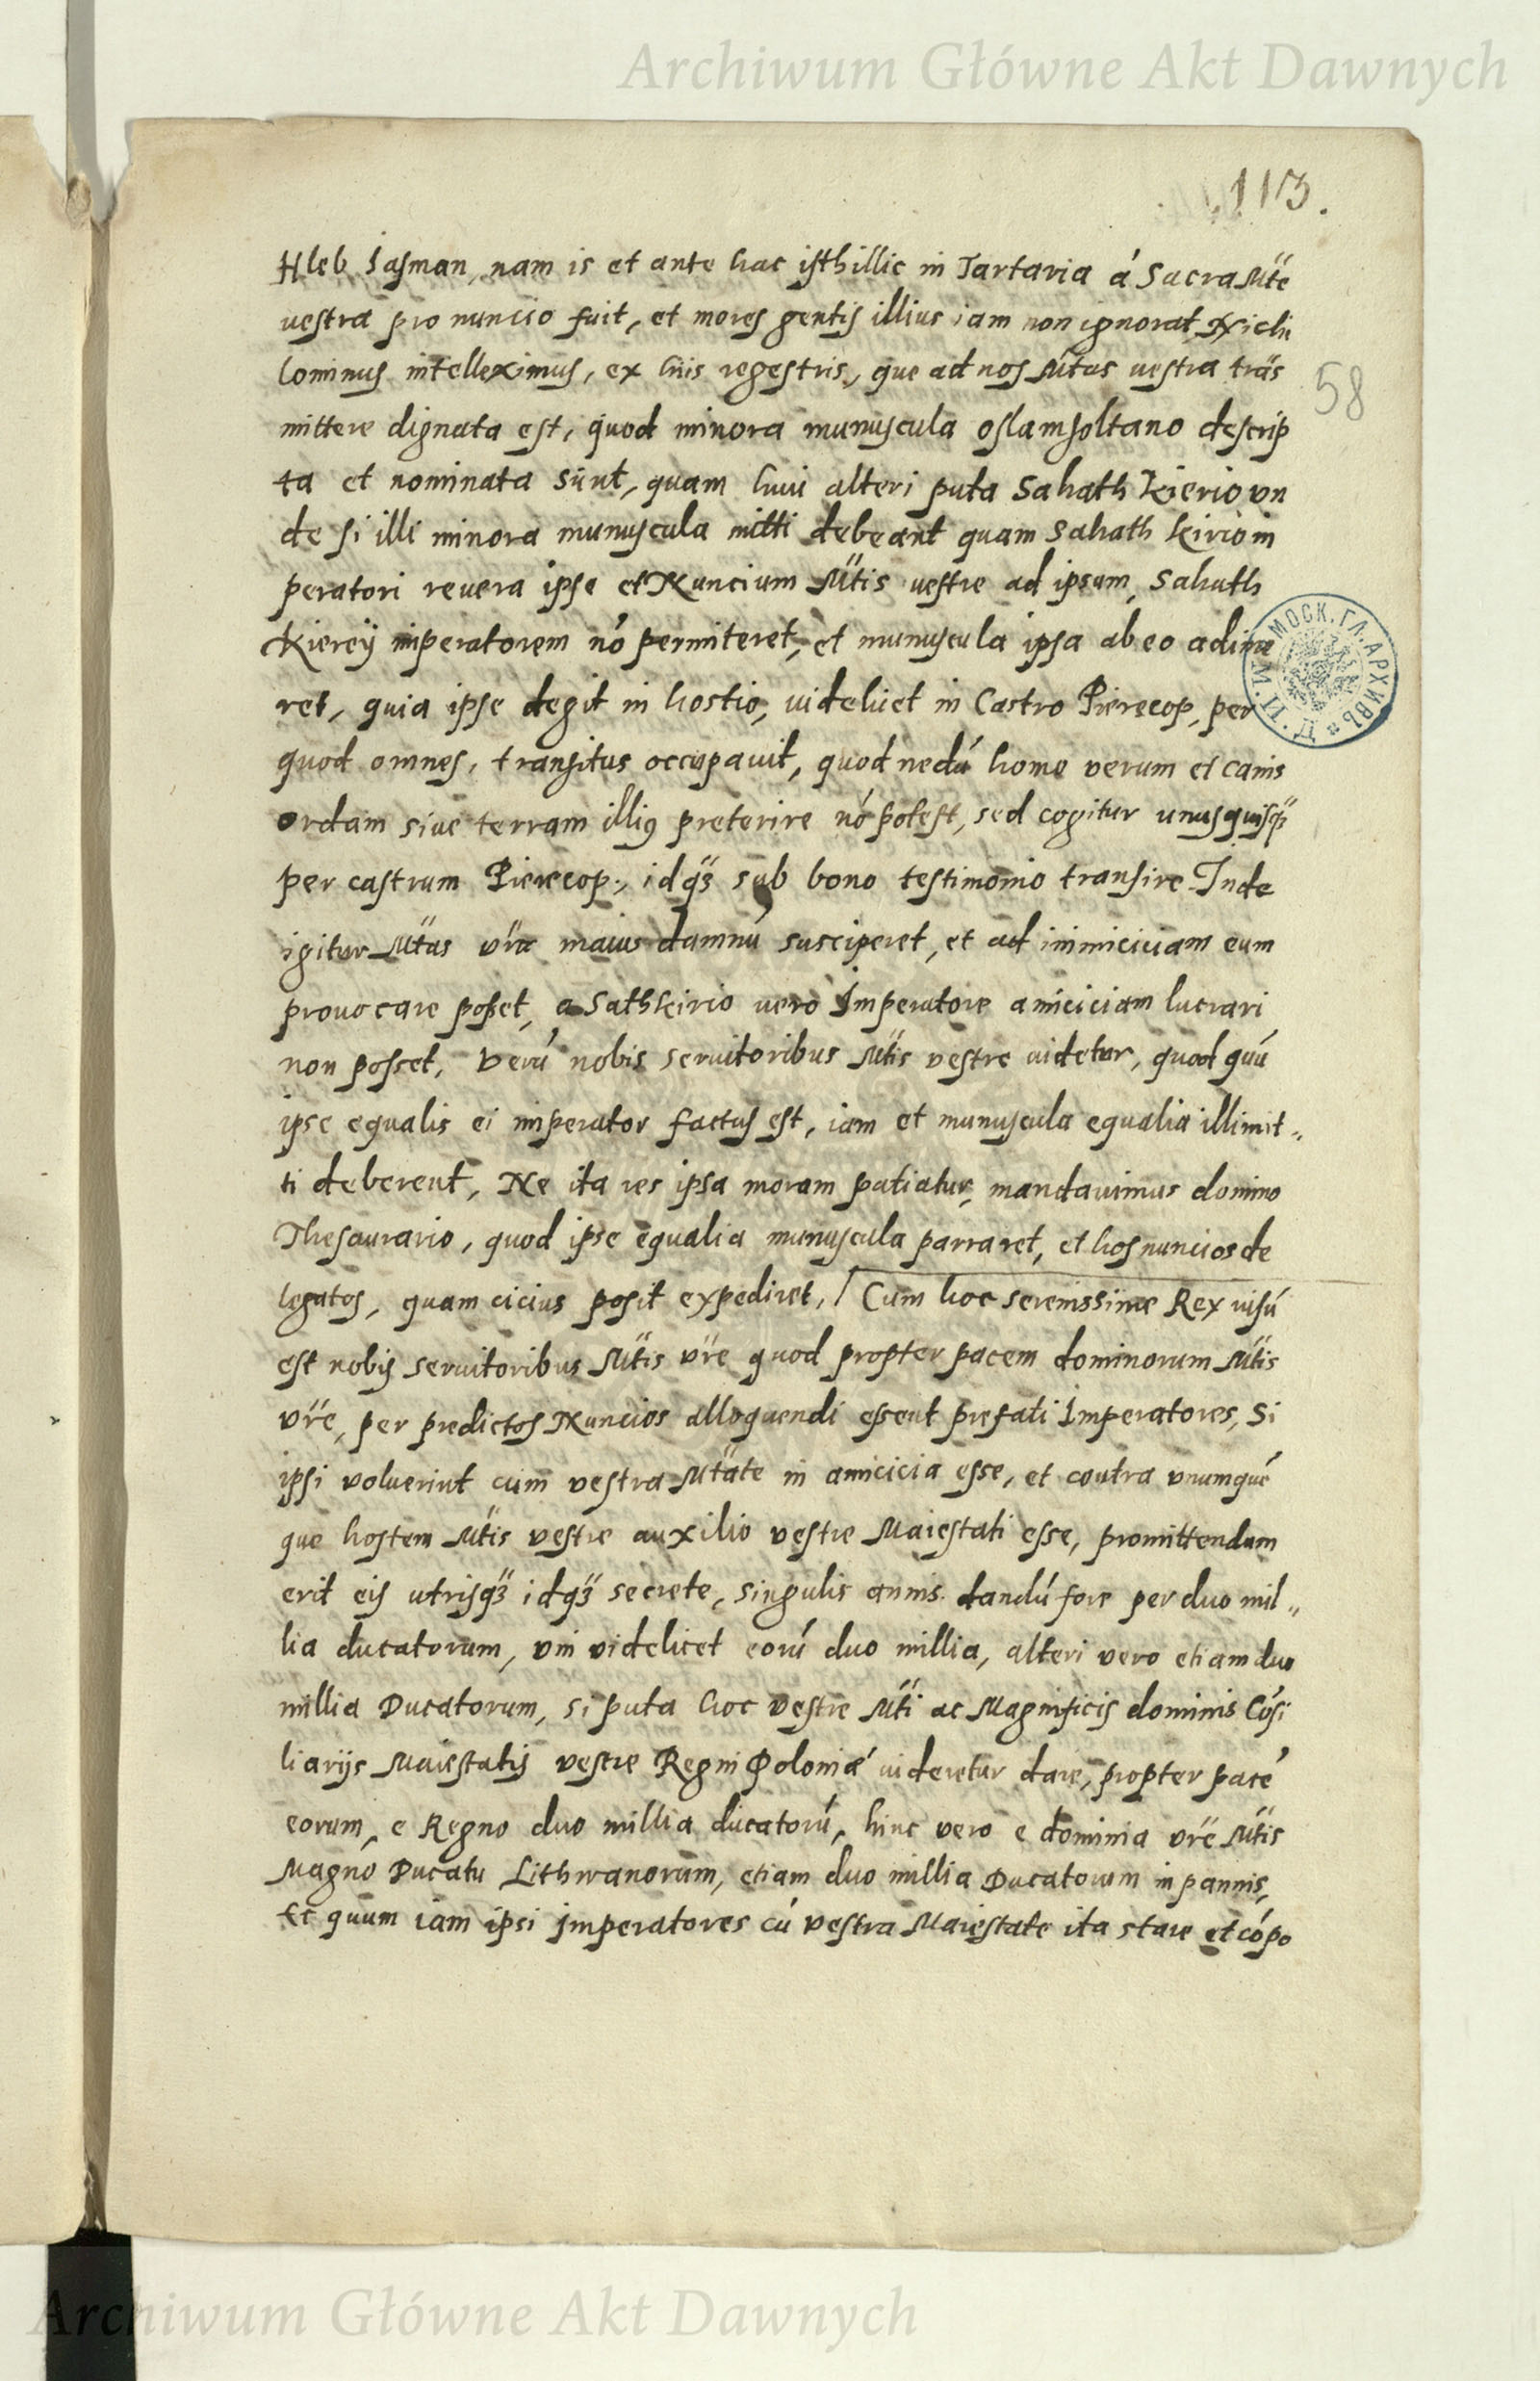 Archiwum Główne Akt Dawnych
113.
Hleb Jasman, nam is et ante hac isthillic in Tartaria á Sacra Mte
vestra pro nuncio fuit, et mores gentis illius iam non ignorat, Nichi
lominus intelleximus, ex hiis regestris, que ad nos Mtas vestra trās
58
mittere dignata est, quod minora munuscula oslamsoltano descrip
ta et nominata sunt, quam huic alteri puta Sahath Kierio vn
de si illi minora munuscula mitti debeant quam Sahath kirio im
peratori revera ipse et Nuncium Mtis vestre ad ipsum, Sahath
Kiereÿ imperatorem nó permiteret, et munuscula ipsa ab eo adime
ret, quia ipse degit in hostio, videlicet in Castro Pierecop, per
quod omnes, transitus occupavit, quod nedú homo verum et canis
ordam sive terram illiꝯ preterire nó potest, sed cogitur unusquisqꝫ
per castrum Pierecop, idqꝫ sub bono testimonio transire. Inde
igitur Mtas vrā maius damnú susciperet, et ad inimiciciam eum
provocare posset, a Sathkirio vero Imperatore amiciciam lucrari
non posset, Verú nobis servitoribus Mtis vestre videtur, quod quú
ipse equalis ei imperator factus est, iam et munuscula equalia illi mit„
ti deberent, Ne ita res ipsa moram patiatur, mandavimus domino
Thesaurario, quod ipse equalia munuscula parraret, et hos nuncios de
legatos, quam cicius posit expediret, Cum hoc serenissime Rex visú
est nobis servitoribus Mtis vrē quod propter pacem dominorum Mtis
vrē, per predictos Nuncios alloquendi essent prefati Imperatores, Si
ipsi voluerint cum vestra Mtate in amicicia esse, et contra vnumqué
que hostem Mtis vestre auxilio vestre Maiestati esse, promittendum
erit eis utrisqꝫ idqꝫ secrete, singulis annis dandú fore per duo mil„
lia ducatorum, vni videlicet eorú duo millia, alteri vero etiam duo
millia Ducatorum, si puta hoc vestre Mti ac Magnificis dominis Cósi
liarijs Maiestatis vestre Regni Poloniæ videretur dare, propter pacé
eorum, e Regno duo millia ducatorú, hinc vero e dominia vrē Mtis
Magno Ducatu Lithwanorum, etiam duo millia Ducatorum in pannis,
Et quum iam ipsi imperatores cú vestra Maiestate ita stare et cópo
МОСК. ГЛ. АРХИВЪ
Archiwum Główne Akt Dawnych